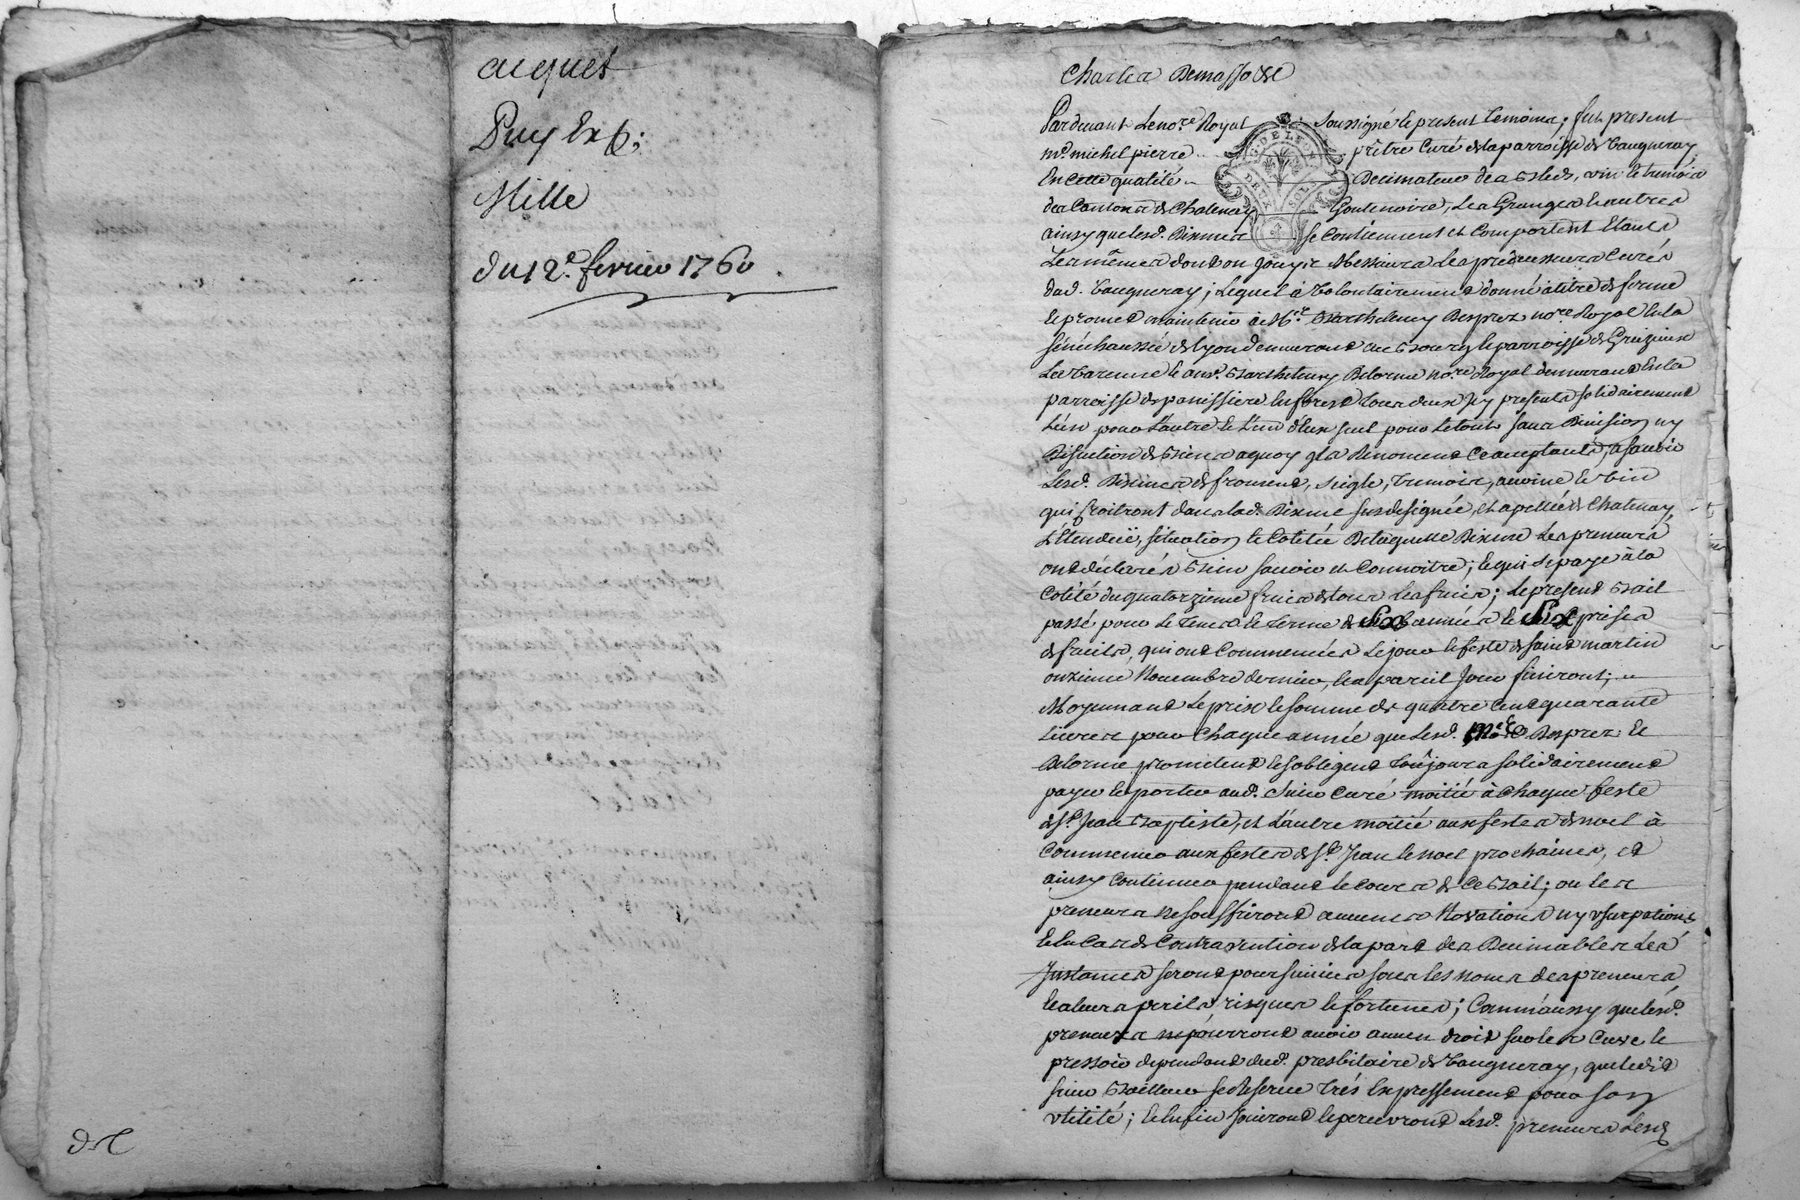 acquet
Puy Exp:
Mille
du 12e. fevrier 1760.
Charles Demasso &c
Pardevant Le nore. Royal soussigné le present temoins; fut present
mre. michel pierre prêtre Curé de la parroisse de Vaugneray,
En cette qualité Decimateur des Bleds, vin et tremois
des Cantons de Chatenay Goutenoire, Les Granges et autres
ainsy que lesd. Dixmes se Contiennent et Comportent Etants
Les mêmes dont on jouys Messieurs Les predecesseurs Curés
dud. Vaugneray; Lequel à Volontairement donné à titre de ferme
et promet maintenir à Me. Barthelemy Desprez nore. Royal en la
sénéchaussée de Lyon demeurant au Bourg et parroisse de Grézieux
La Varenne et aud. Barthelemy Delorme nore. Royal demeurant en la
parroisse de panissiere en forest tous deux Icy presents solidairement
L'un pour L'autre et L'un d'Eux seul pour Le tout sans Division ny
Discution de Biens a quoy ils Renoncent Ceacceptants, a savoir
Lesd. Dixmes de froment, seigle, tremois, avoine et vin
qui Croitront dans lad. Dixme sus designée, et apellée de Chatenay
L'Etenduë, situation et Cotité De laquelle Dixme Les preneurs
ont déclarés Bien savoir et Connoitre; et qui se paye à la
Cotité du quatorzieme fruit de tous les fruits; Le present Bail
passé pour Le tems et terme de Six années et Six prises
de fruits, qui ont Commencées Le jour et feste de saint martin
onzieme Novembre dernier, et a pareil jour finiront;
Moyennant Le prix et somme de quatre Cent quarante
Livres pour Chaque année que Lesd. Me. Desprez Et
Delorme promettent et s'obligent toûjours solidairement
payer et porter aud. sieur Curé moitié à Chaque feste
de St. Jean Baptiste, et L'autre moitié aux festes de noel à
Commencer aux festes de St. Jean et noel prochaines, et
ainsy Continuer pendant le Cours de Ce Bail; où les
preneurs ne souffriront aucunes Novations ny usurpations
Et En Cas de Contravention de la part des Decimables Les
Instances seront poursuivies sous les noms des preneurs
et a leurs perils risques et fortunes; Comm'aussy que lesd.
preneurs ne pourront avoir aucun droit sur les Cuve et
pressoir dependant dud. presbitaire de Vaugneray, que ledit
sieur Bailleur se Reserve trés Expressement pour son
utilité; Et Enfin jouiront et percevront Lesd. preneurs Lesd